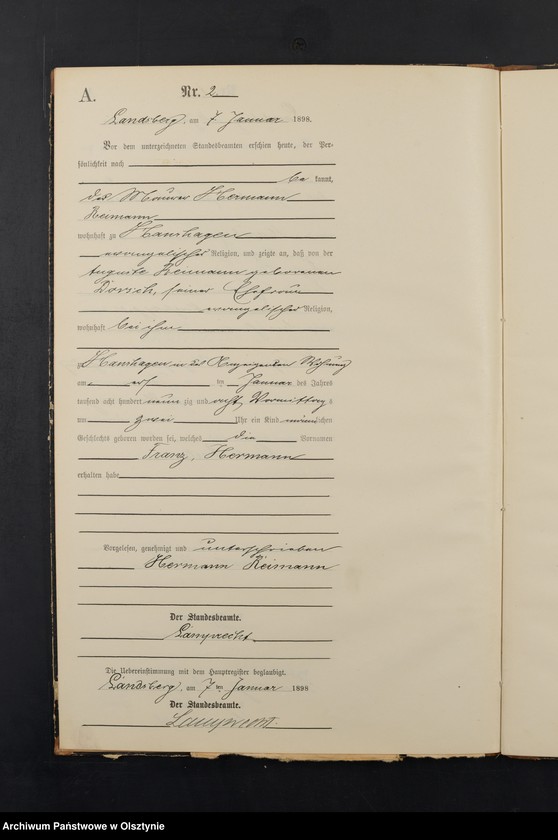 A.
Nr. 2
Landsberg, am 7 Januar 1898.
Vor dem unterzeichneten Standesbeamten erschien heute, der Per-
sönlichkeit nach
be kannt,
der Maurer Hermann
Reimann
wohnhaft zu Hanshagen
evangelischer Religion, und zeigte an, daß von der
Auguste Reimann geborenen
Dorsch, seiner Ehefrau
evangelischer Religion,
wohnhaft bei ihm
zu Hanshagen in des Anzeigenden Wohnung
am ten Januar des Jahres
tausend acht hundert neun zig und acht Vormittags
um zwei Uhr ein Kind männlichen
Geschlechts geboren worden sei, welches die Vornamen
Franz, Hermann
erhalten habe
Vorgelesen, genehmigt und unterschrieben
Hermann Reimann
Der Standesbeamte.
Lamprecht
Die Uebereinstimmung mit dem Hauptregister beglaubigt.
Landsberg, am 7ten Januar 1898
Der Standesbeamte.
Lamprecht
Archiwum Państwowe w Olsztynie